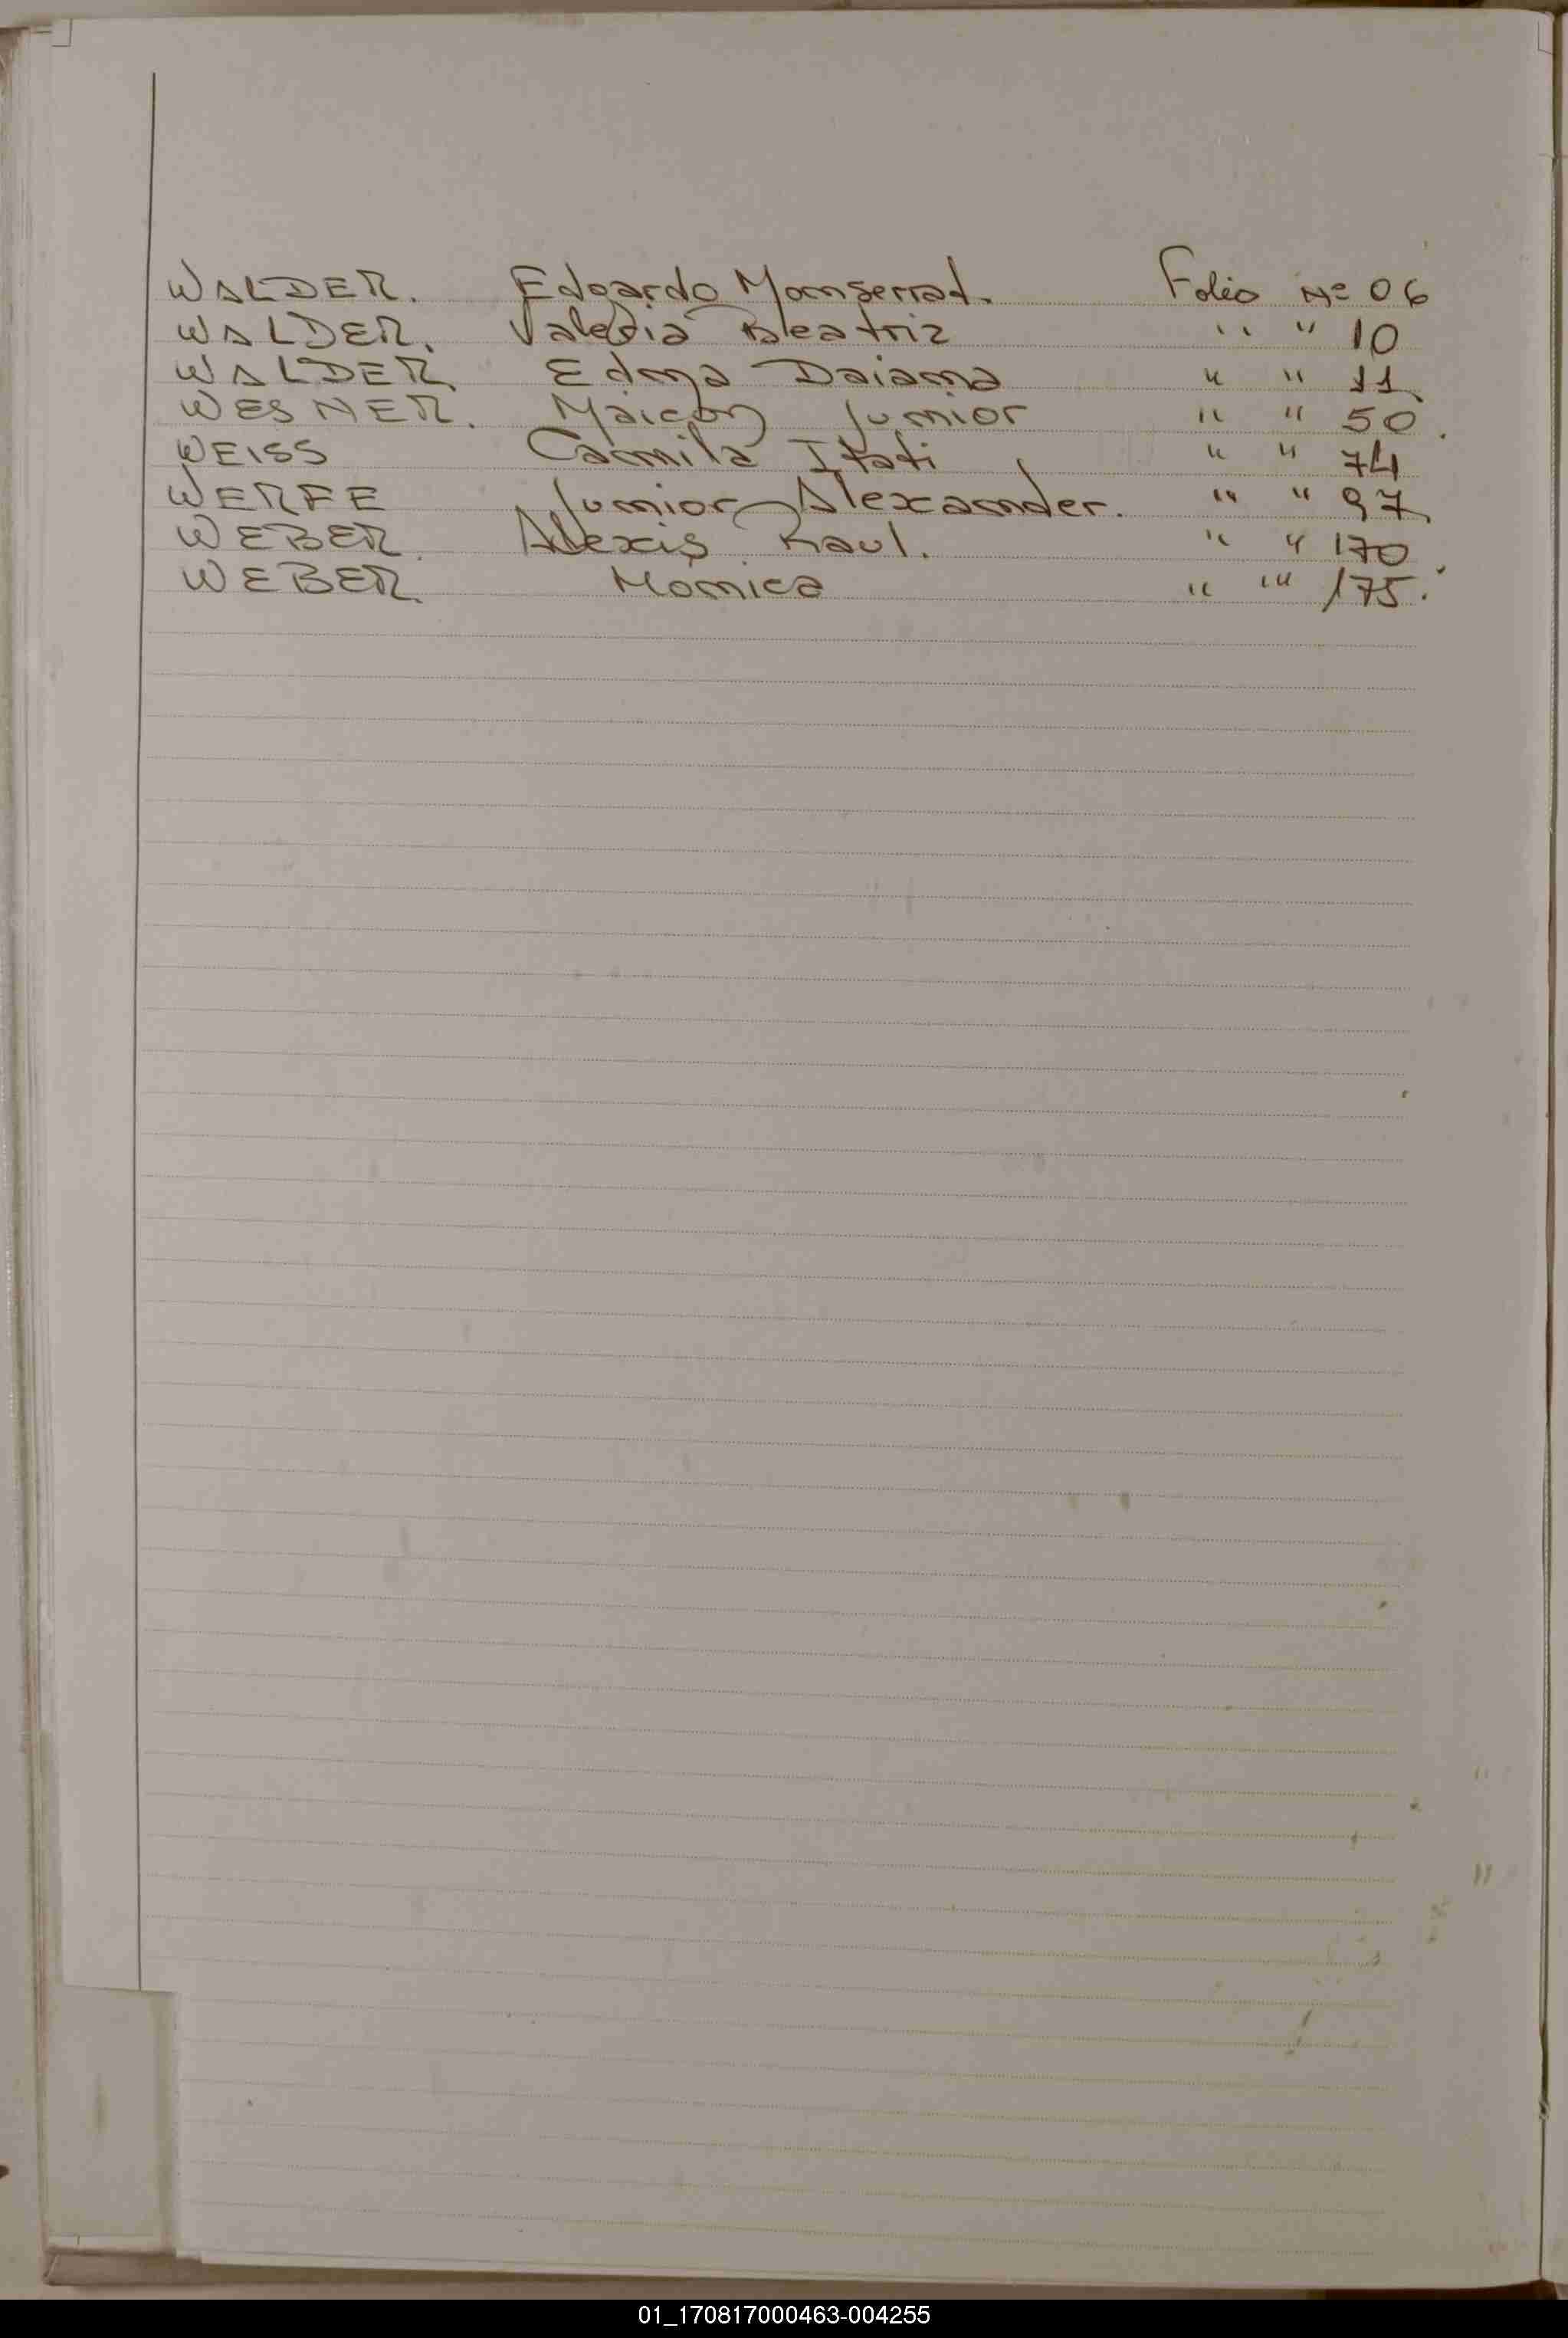 WALDER. Edgardo Monserrat. Folio Nº 06
WALDER. Valeria Beatriz " " 10
WALDER Edna Daiana " " 11
WESNER. Maicon Junior " " 50.
WEISS Camila Itati " " 74
WERFE Junior Alexander. " " 97
WEBER. Alexis Raul. " " 170.
WEBER. Monica " " 175.
01_170817000463-004255